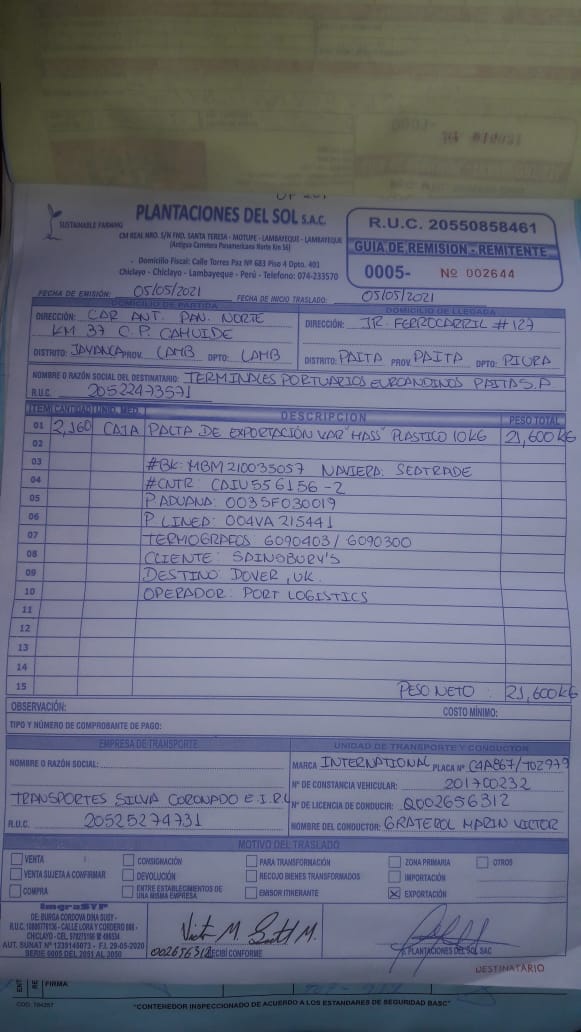 SUSTAINABLE FARMING
PLANTACIONES DEL SOL S.A.C.
CM REAL NRO. S/N FND. SANTA TERESA - MOTUPE - LAMBAYEQUE - LAMBAYEQUE
(Antigua Carretera Panamericana Norte Km 56)
- Domicilio Fiscal: Calle Torres Paz Nº 683 Piso 4 Dpto. 401
Chiclayo - Chiclayo - Lambayeque - Perú - Telefono: 074-233570
R.U.C. 20550858461
GUIA DE REMISION - REMITENTE
0005- Nº 002644
FECHA DE EMISIÓN: 05/05/2021 FECHA DE INICIO TRASLADO: 05/05/2021
DOMICILIO DE PARTIDA
DIRECCIÓN: CAR. ANT. PAN. NORTE
KM 37 C.P. CAHUIDE
DISTRITO: JAYANCA PROV. LAMB DPTO: LAMB
DOMICILIO DE LLEGADA
DIRECCIÓN: JR. FERROCARRIL # 127
DISTRITO: PAITA PROV. PAITA DPTO: PIURA
NOMBRE O RAZÓN SOCIAL DEL DESTINATARIO: TERMINALES PORTUARIOS EUROANDINOS PAITA S.A
R.U.C. 20522473571
ITEM CANTIDAD UNID. MED. DESCRIPCION PESO TOTAL
01 2,160 CAJA PALTA DE EXPORTACIÓN VAR "HASS" PLASTICO 10KG 21,600 KG
02
03 #BK: MBM210035057 NAVIERA: SEATRADE
04 #CNTR: CAIU556156-2
05 P. ADUANA: 0035F030019
06 P. LINEA: 004VA215441
07 TERMOGRAFOS 6090403 / 6090300
08 CLIENTE: SAINSBURY'S
09 DESTINO DOVER, UK.
10 OPERADOR: PORT LOGISTICS
11
12
13
14
15 PESO NETO: 21,600 KG
OBSERVACIÓN: COSTO MÍNIMO:
TIPO Y NÚMERO DE COMPROBANTE DE PAGO:
EMPRESA DE TRANSPORTE
NOMBRE O RAZÓN SOCIAL:
TRANSPORTES SILVA CORONADO E.I.R.L
R.U.C. 20525274731
UNIDAD DE TRANSPORTE Y CONDUCTOR
MARCA INTERNATIONAL PLACA Nº C4A867/T02979
Nº DE CONSTANCIA VEHICULAR: 201700232
Nº DE LICENCIA DE CONDUCIR: Q002656312
NOMBRE DEL CONDUCTOR: GRATEROL MARIN VICTOR
MOTIVO DEL TRASLADO
VENTA CONSIGNACIÓN PARA TRANSFORMACIÓN ZONA PRIMARIA OTROS
VENTA SUJETA A CONFIRMAR DEVOLUCIÓN RECOJO BIENES TRANSFORMADOS IMPORTACIÓN
COMPRA ENTRE ESTABLECIMIENTOS DE UNA MISMA EMPRESA EMISOR ITINERANTE EXPORTACIÓN
ImgraSYP
DE: BURGA CORDOVA DINA SUSY -
CHICLAYO -
AUT. SUNAT Nº 1339145073 - F.I. 29-05-2020
SERIE 0005 DEL 2051 AL 2050
002656312
RECIBÍ CONFORME
P. PLANTACIONES DEL SOL SAC
DESTINATARIO
FIRMA:
"CONTENEDOR INSPECCIONADO DE ACUERDO A LOS ESTANDARES DE SEGURIDAD BASC"